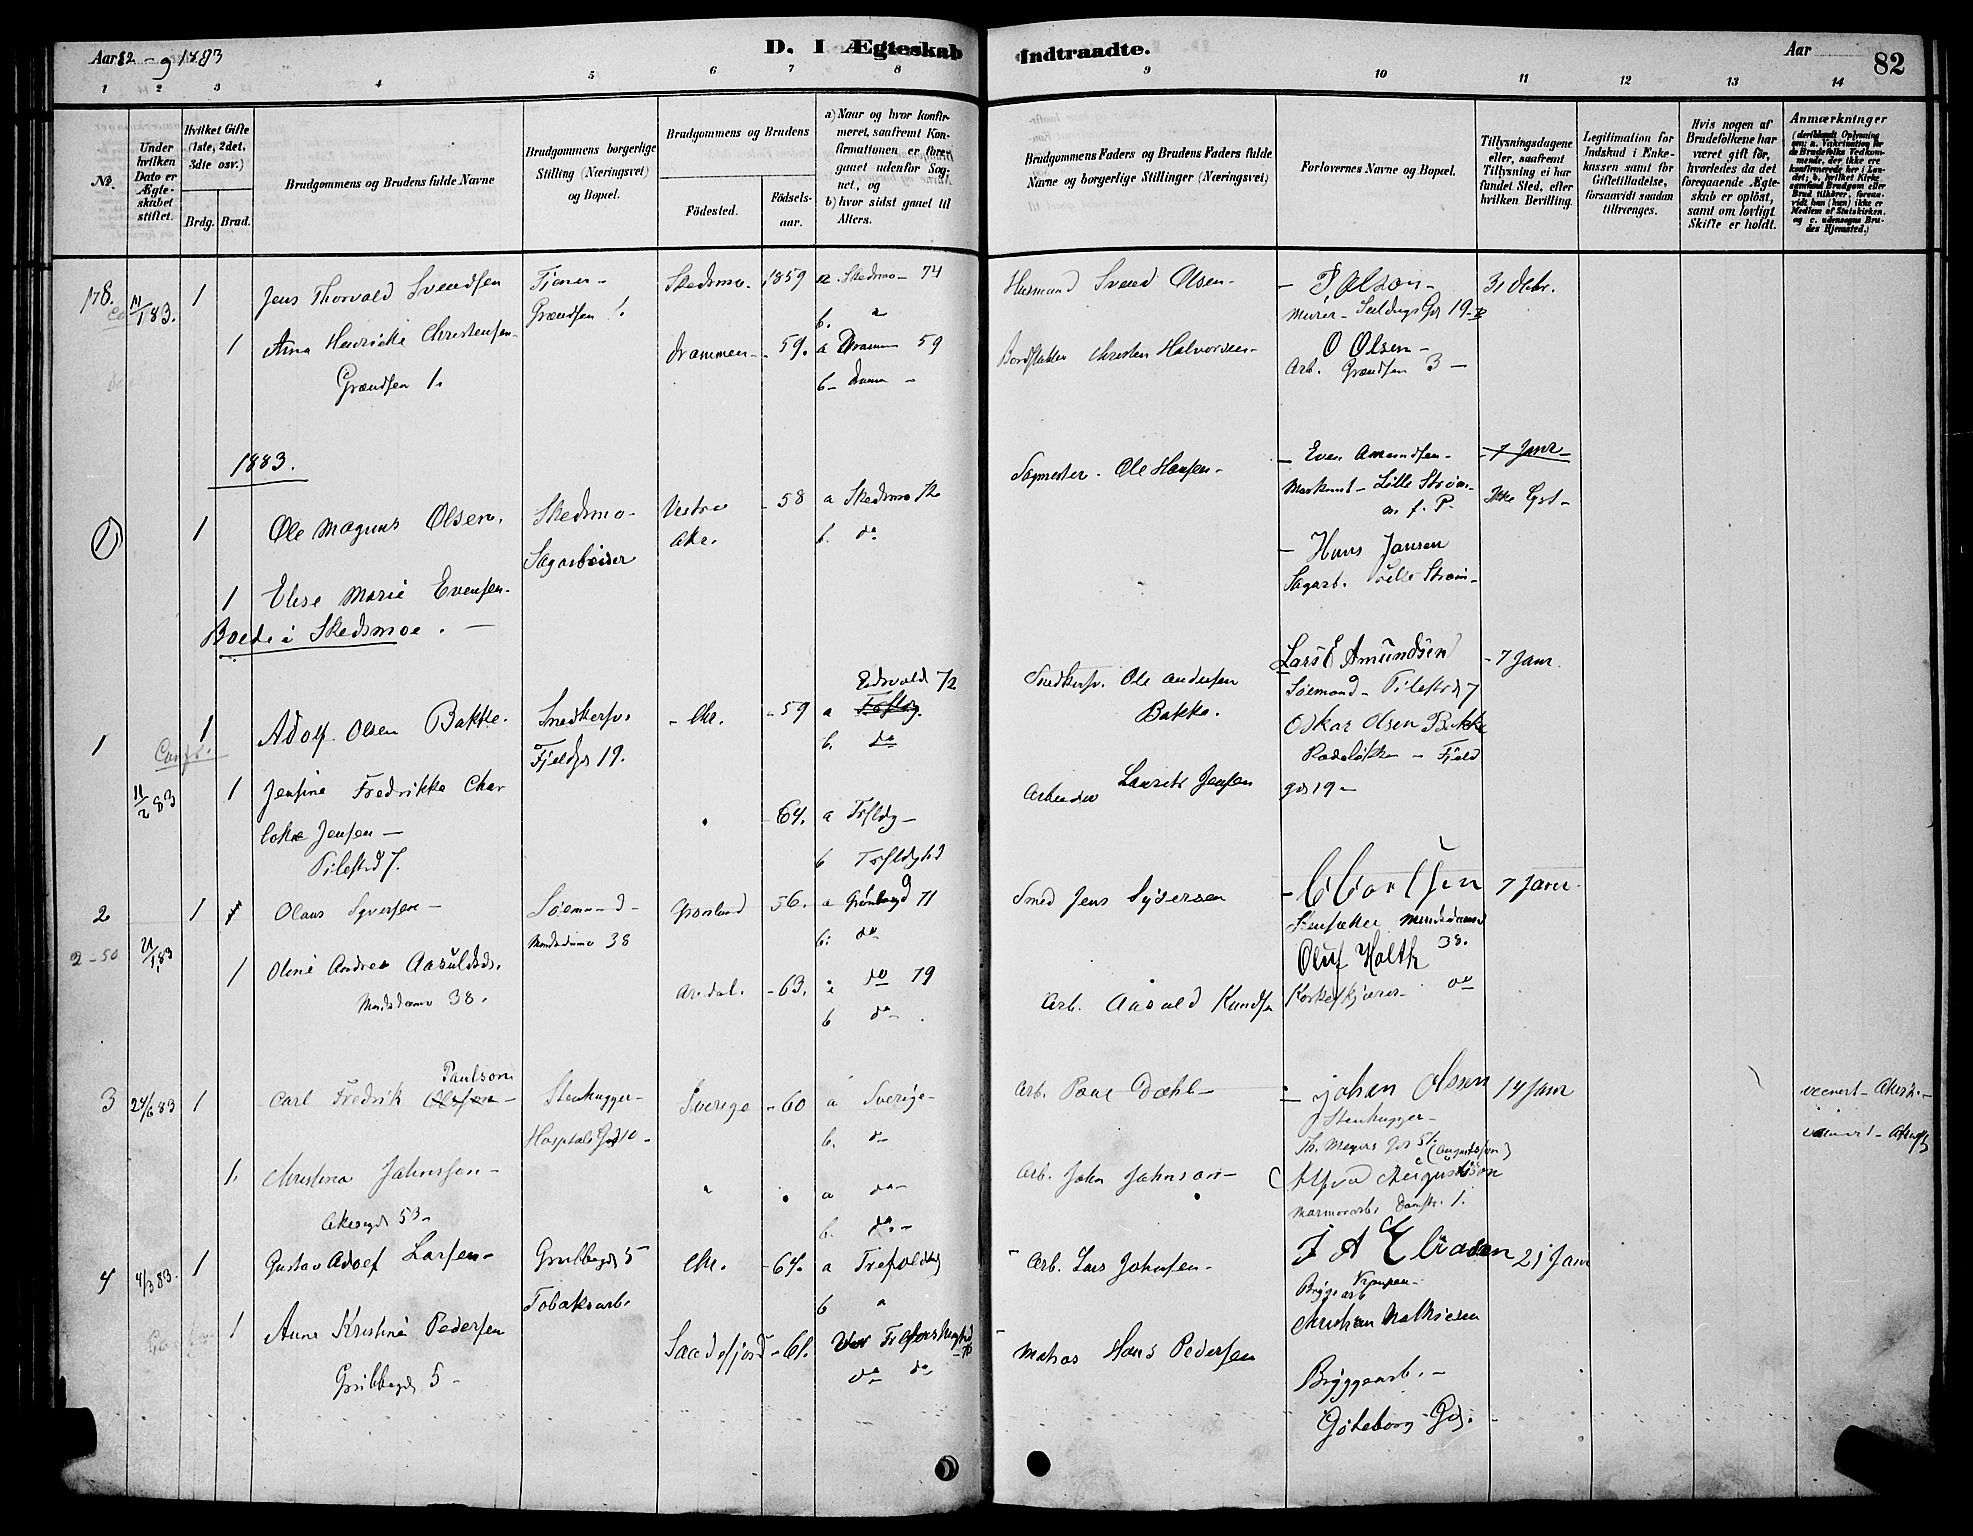 Aar 82 - og 1883
D. I Ægteskab Indtraadte.
Aar
82
1 2 3 4 5 6 7 8 9 10 11 12 13 14
No.
Under hvilken Dato er Ægteskabet stiftet.
Hvilket Gifte (1ste, 2det, 3die osv.)
Brdg. Brud.
Brudgommens og Brudens fulde Navne
Brudgommens borgerlige Stilling (Næringsvei) og Bopæl.
Brudgommens og Brudens
Fødested.
Fødselsaar.
a) Naar og hvor konfirmeret, saafremt Konfirmationen er foregaaet udenfor Sognet, og
b) hvor sidst gaaet til Alters.
Brudgommens Faders og Brudens Faders fulde Navne og borgerlige Stillinger (Næringsvei)
Forlovernes Navne og Bopæl.
Tillysningsdagene eller, saafremt Tillysning ei har fundet Sted, efter hvilken Bevilling.
Legitimation for Indskud i Enkekassen samt for Giftetilladelse, forsaavidt saadan tiltrænges.
Hvis nogen af Brudefolkene har været gift før, hvorledes da det foregaaende Ægteskab er opløst, samt om lovligt Skifte er holdt.
Anmærkninger
(deriblandt Oplysning om: a. Vakcination for de Brudefolks Vedkommende, der ikke ere konfirmerede her i Landet; b. hvilket Kirkesamfund Brudgom eller Brud tilhører, forsaavidt han (hun) ikke er Medlem af Statskirken. og c. udensogns Brudes Hjemsted.)
178. 11/1 83. 1 Jens Thorvald Svendsen
Grændsen 1.
Skedsmo. 1859 a. Skedsmo - 74
b. "
Husmand Svend Olsen -
Murer -
31 Decbr.
1 Anna Henrikke Christensen -
Grændsen 1.
Drammen - - 59. a Dramm 59
b - Dramm -
Christen Halvorsen -
O Olsen -
Arb. Grændsen 3 -
1883.
1 1 Ole Magnus Olsen.
Skedsmo -
Sagarbeider
Vestre Ake. - 58 a Skedsmo 72
b. do
Sagmester - Ole Hansen -
- Even Amundsen -
Lille Strøm -
- 7 Janr -
Ikke lyst -
1 Elise Marie Evensen -
- Hans Jansen
Sagarb. Lille Strøm -
Boede i Skedsmoe. -
1 1 Adolf Olsen Bakke.
Snedkersv.
Fjeldgd 19.
- Chr. - 59 a Eidsvold 72
Trfldg.
b. do
Snedkersv. Ole Andersen Bakke.
Lars E Amundsen
Sømand - Pilestrd 7
Oskar Olsen Bakke
Rodeløkken - Fjeld
gd 19 -
- 7 Janr.
11/2 83 1 Jensine Fredrikke Char
lotte Jensen -
Pilestrd 7.
" - 64. a Trfldg -
b Trfldghd
Arbeider Laurits Jensen
2 1 Olaus Syversen -
Sømand -
Munkedamv 38
Grønland - 56. a Grønland 71
b. do
Smed Jens Syversen
Munkedamv 38.
7 Janr.
2 - 50 21/1 83 1 Oline Andrea Aasuldsd.
Munkedamv 38.
Arendal. - 63. a do 79
b do
Arb. Aasuld Knudsen
Oluf Holth
Korkeskjærer - do
3 24/6 83 1 Carl Fredrik Paulson
Olsson -
Stenhugger -
Hospitals Gd 10 -
Sverige - 60 a Sverige -
b. do
Arb. Paul Dahl -
- Johan Olsson
Stenhugger -
Th. Meyers Gd 51. (Augustsson)
14 Janr
1. Christina Johnsson -
Akersgd 53 -
" " a do -
b. do -
Arb. John Johnson -
Alfred Augustsson
Marmorarb. Damstr. 1.
4 4/3 83. 1 Gustav Adolf Larsen -
Grubbegd 5
Tobaksarb.
Chr. - 64. a Trefoldhd
b "
Arb. Lars Johnsen -
J A Eliasen
Bryggearb
21 Janr
1 Anne Kristine Pedersen
Grubbegd 5 -
Sandefjord - 61.
do do
Matros Hans Pedersen
Christian Mathiesen
Bryggearb. -
Gøteborg Gd. -